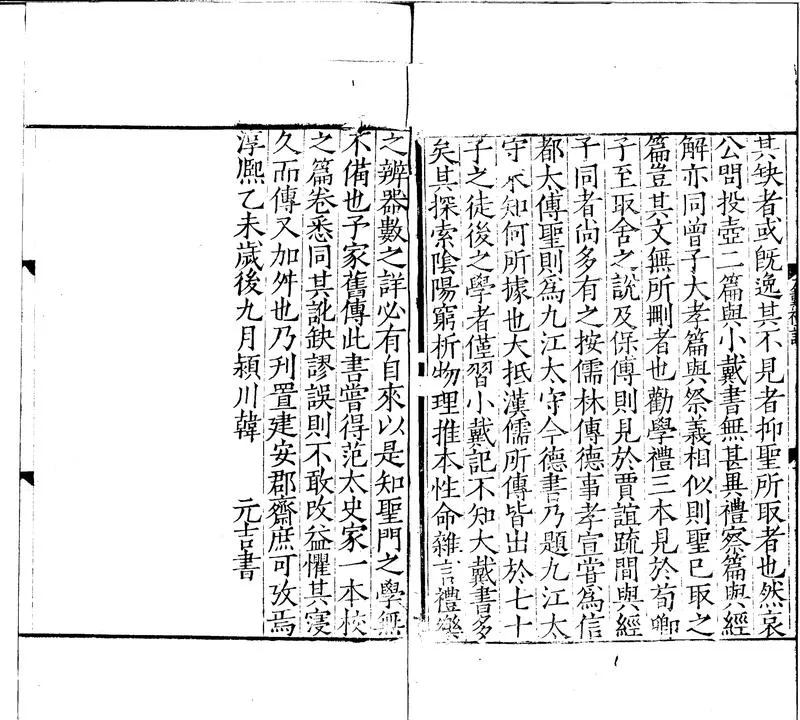 其缺者或旣逸其不見者抑聖所取者也然哀
公問投壺二篇與小戴書無甚異禮察篇與經
解亦同曾子大孝篇與祭義相似則聖已取之
篇豈其文無所刪者也勸學禮三本見於荀卿
子至取舍之說及保傅則見於賈誼疏間與經
子同者尚多有之按儒林傳德事孝宣嘗爲信
都太傅聖則爲九江太守今德書乃題九江太
守未知何所據也大抵漢儒所傳皆出於七十
子之徒後之學者僅習小戴記不知大戴書多
矣其探索陰陽窮析物理推本性命雜言禮樂
之辨器數之詳必有自來以是知聖門之學無
不備也予家舊傳此書嘗得范太史家一本校
之篇卷悉同其訛缺謬誤則不敢改益懼其寖
久而傳又加舛也乃刊置建安郡齋庶可攷焉
淳熙乙未歲後九月潁川韓 元吉書